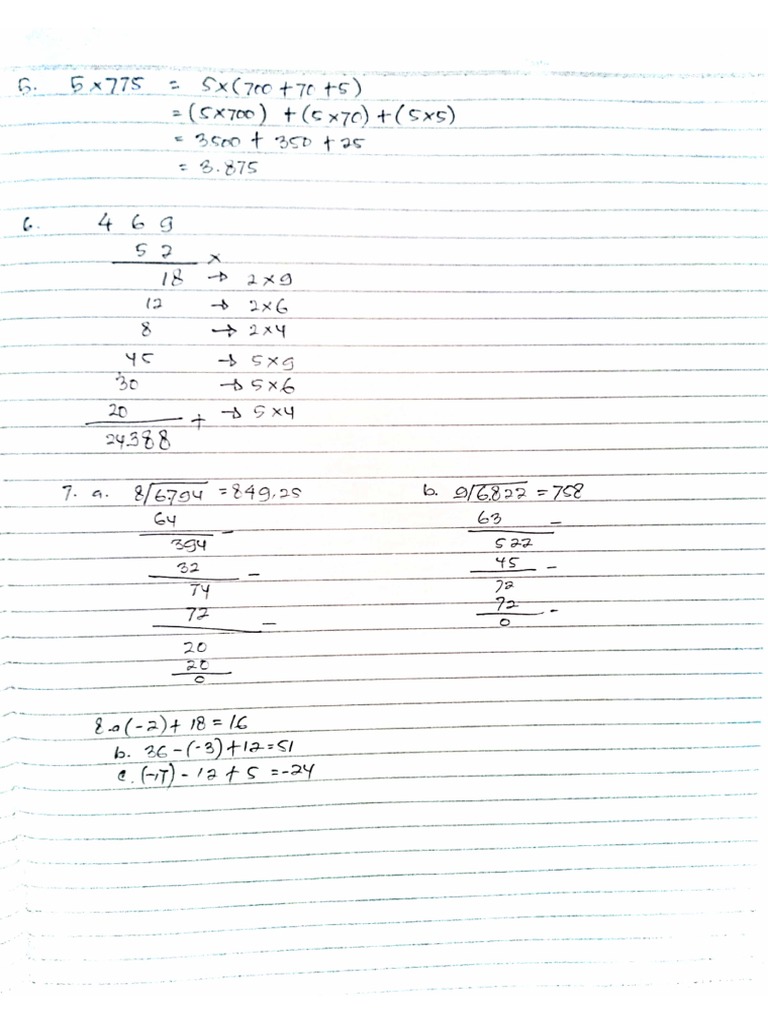 5. 5×775 = 5×(700+70+5)
=(5×700) +(5×70)+(5×5)
= 3500 + 350 + 25
= 3.875
6. 4 6 9
5 2 ×
18 → 2×9
12 → 2×6
8 → 2×4
45 → 5×9
30 → 5×6
20 + → 5×4
24.388
7. a. 8/6.794 = 849,25
64 −
394
32 −
74
72 −
20
20
0
b. 9/6.822 = 758
63 −
522
45 −
72
72 −
0
8. a (-2)+ 18 = 16
b. 36 -(-3)+12=51
c. (-17) - 12 + 5 = -24